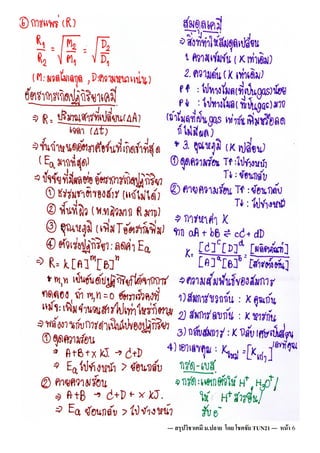 ⑥ การแพร่ (R)
R₁/R₂ = √(M₂/M₁) = √(D₂/D₁)
(M: มวลโมเลกุล, D: ความหนาแน่น)
อัตราการเกิดปฏิกิริยาเคมี
⇒ R = ปริมาณสารที่เปลี่ยน(ΔA) / เวลา (Δt)
⇒ ขั้นกำหนดอัตราคือขั้นที่เกิดช้าที่สุด
(Ea มากที่สุด)
⇒ ปัจจัยที่มีผลต่อ อัตราการเกิดปฏิกิริยา
① ธรรมชาติของสาร (แก้ไม่ได้)
② พื้นที่ผิว (พ.ท.ผิวมาก R มาก)
③ อุณหภูมิ (เพิ่ม T อัตราเพิ่ม)
④ ตัวเร่งปฏิกิริยา: ลดค่า Ea
⇒ R = k[A]ᵐ[B]ⁿ
* m,n เป็นอันดับปฏิกิริยาได้จากการ
ทดลอง ถ้า m,n = 0 อัตราเร็วคงที่
⇒ พลังงานกับการดำเนินไปของปฏิกิริยา
① ดูดความร้อน
⇒ A+B+xKJ → C+D
⇒ Ea ไปข้างหน้า > ย้อนกลับ
② คายความร้อน
⇒ A+B → C+D + xKJ.
⇒ Ea ย้อนกลับ > ไปข้างหน้า
สมดุลเคมี
⇒ สิ่งที่ทำให้สมดุลเปลี่ยน
1. ความเข้มข้น (K เท่าเดิม)
2. ความดัน (K เท่าเดิม)
P↑ : ไปทางโมล(ที่เป็นgas)น้อย
P↓ : ไปทางโมล(ที่เป็นgas)มาก
(ถ้าโมลที่เป็นgas เท่ากัน เพิ่มหรือลด
ก็ไม่มีผล)
* 3. อุณหภูมิ (K เปลี่ยน)
① ดูดความร้อน T↑ : ไปข้างหน้า
T↓ : ย้อนกลับ
② คายความร้อน T↑ : ย้อนกลับ
T↓ : ไปข้างหน้า
⇒ การหาค่า K
จาก aA + bB ⇌ cC + dD
K = [C]ᶜ[D]ᵈ / [A]ᵃ[B]ᵇ = [ผลิตภัณฑ์] / [สารตั้งต้น]
⇒ ความสัมพันธ์ของสมการ
1) สมการบวกกัน : K คูณกัน
2) สมการลบกัน : K หารกัน
3) กลับสมการ : K กลับเศษเป็นส่วน
กรด-เบส
ให้ H⁺ สารอื่น/
รับ e⁻
--- สรุปวิชาเคมี ม.ปลาย โดย โชคชัย TUN21 --- หน้า 6